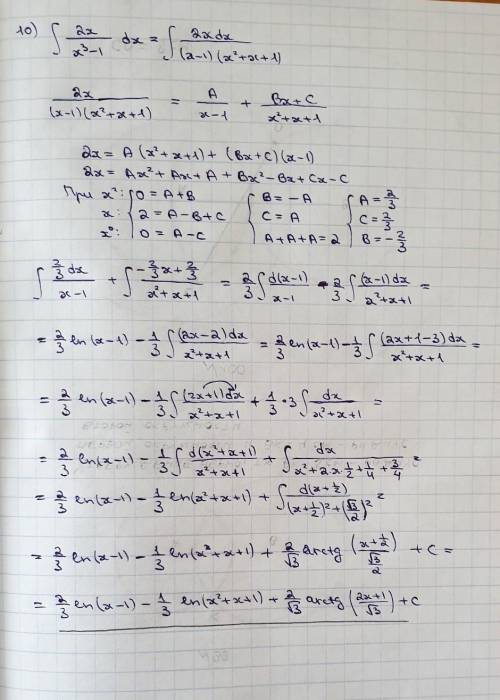 10) ∫ 2x/(x³-1) dx = ∫ 2xdx/((x-1)(x²+x+1))
2x/((x-1)(x²+x+1)) = A/(x-1) + (Bx+C)/(x²+x+1)
2x = A(x²+x+1) + (Bx+C)(x-1)
2x = Ax²+Ax+A+Bx²-Bx+Cx-C
При x²: { 0=A+B { B=-A { A=2/3
x: { 2=A-B+C { C=A { C=2/3
x⁰: { 0=A-C { A+A+A=2 { B=-2/3
∫ (2/3 dx)/(x-1) + ∫ (-2/3 x + 2/3)/(x²+x+1) = 2/3 ∫ d(x-1)/(x-1) - 2/3 ∫ (x-1)dx/(x²+x+1) =
= 2/3 ln(x-1) - 1/3 ∫ (2x-2)dx/(x²+x+1) = 2/3 ln(x-1) - 1/3 ∫ (2x+1-3)dx/(x²+x+1) =
= 2/3 ln(x-1) - 1/3 ∫ (2x+1)dx/(x²+x+1) + 1/3 · 3 ∫ dx/(x²+x+1) =
= 2/3 ln(x-1) - 1/3 ∫ d(x²+x+1)/(x²+x+1) + ∫ dx/(x²+2x·1/2+1/4+3/4) =
= 2/3 ln(x-1) - 1/3 ln(x²+x+1) + ∫ d(x+1/2)/((x+1/2)²+(√3/2)²) =
= 2/3 ln(x-1) - 1/3 ln(x²+x+1) + 2/√3 arctg ((x+1/2)/(√3/2)) + C =
= 2/3 ln(x-1) - 1/3 ln(x²+x+1) + 2/√3 arctg ((2x+1)/√3) + C